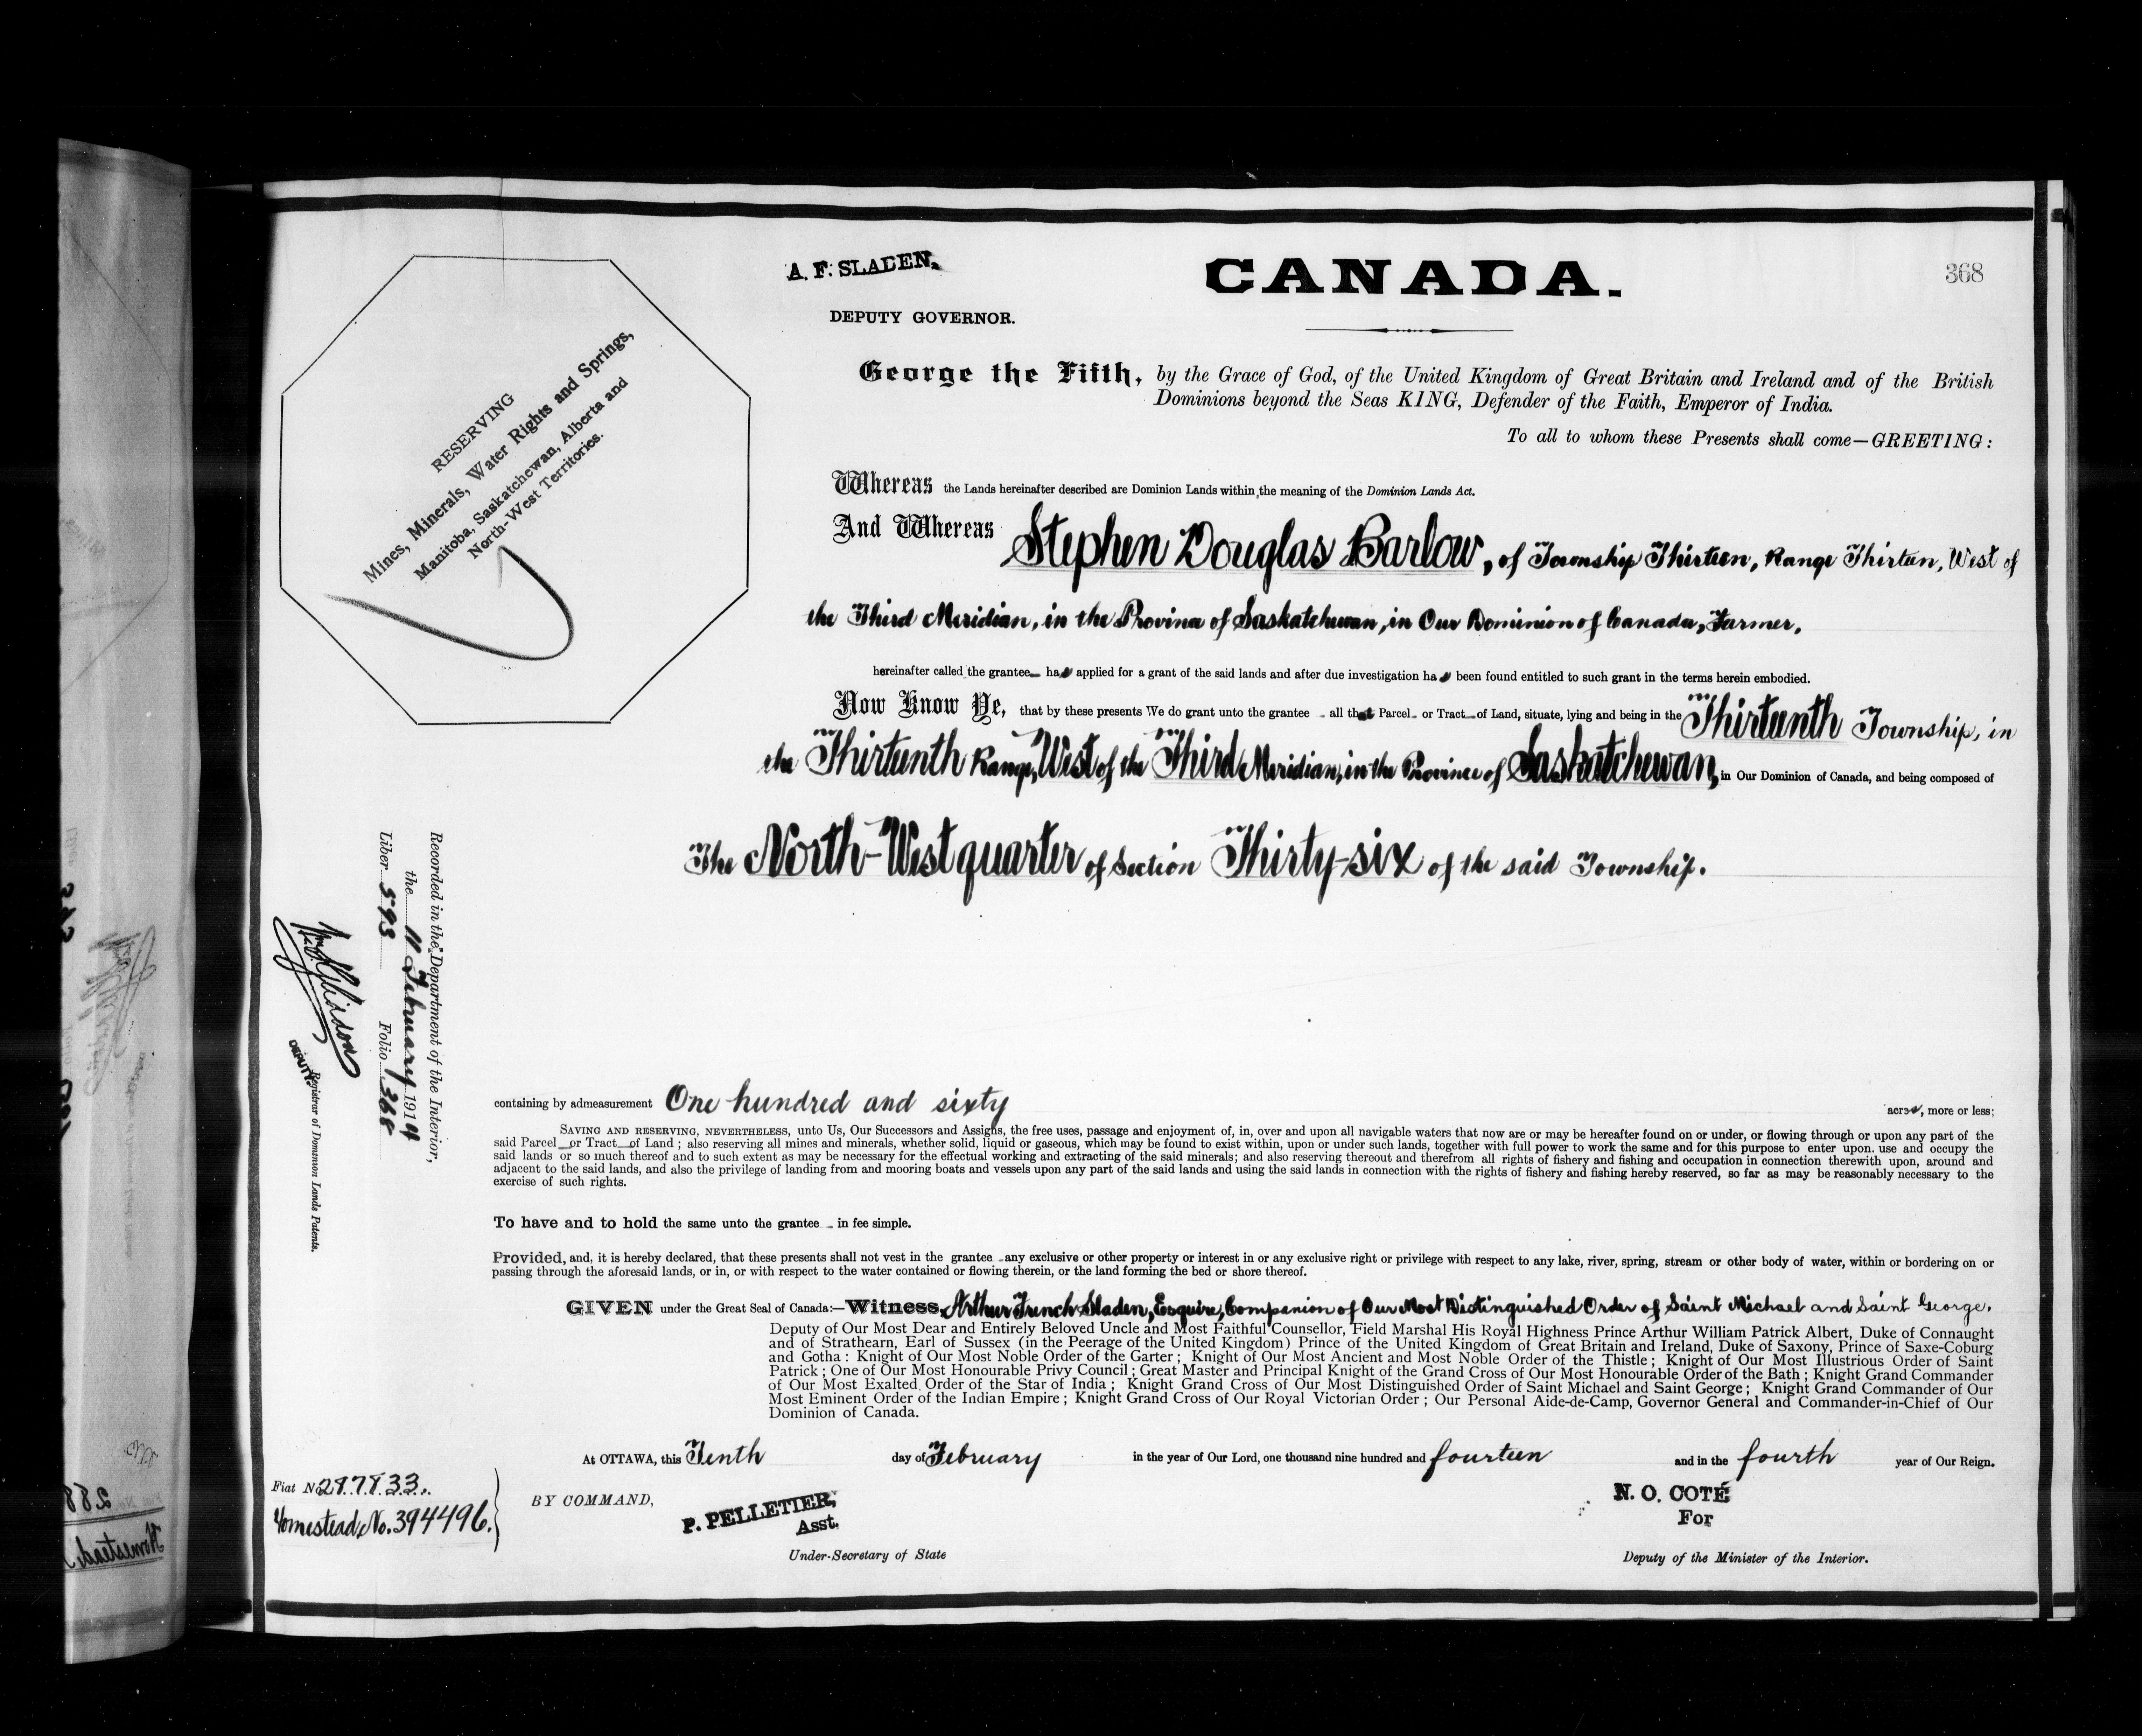 A. F. SLADEN,
DEPUTY GOVERNOR.
CANADA.
368
RESERVING
Mines, Minerals, Water Rights and Springs,
Manitoba, Saskatchewan, Alberta and
North-West Territories.
George the Fifth, by the Grace of God, of the United Kingdom of Great Britain and Ireland and of the British
Dominions beyond the Seas KING, Defender of the Faith, Emperor of India.
To all to whom these Presents shall come—GREETING:
Whereas the Lands hereinafter described are Dominion Lands within the meaning of the Dominion Lands Act.
And Whereas Stephen Douglas Barlow, of Township Thirteen, Range Thirteen, West of
the Third Meridian, in the Province of Saskatchewan, in Our Dominion of Canada, Farmer,
hereinafter called the grantee ha s applied for a grant of the said lands and after due investigation ha s been found entitled to such grant in the terms herein embodied.
Now Know Ye, that by these presents We do grant unto the grantee all that Parcel or Tract of Land, situate, lying and being in the Thirteenth Township, in
the Thirteenth Range, West of the Third Meridian, in the Province of Saskatchewan, in Our Dominion of Canada, and being composed of
The North-West quarter of Section Thirty-six of the said Township.
Recorded in the Department of the Interior,
the 11 February 1914
Liber 593 Folio 368
DEPUTY Registrar of Dominion Lands Patents.
containing by admeasurement One hundred and sixty acres, more or less;
SAVING AND RESERVING, NEVERTHELESS, unto Us, Our Successors and Assigns, the free uses, passage and enjoyment of, in, over and upon all navigable waters that now are or may be hereafter found on or under, or flowing through or upon any part of the
said Parcel or Tract of Land; also reserving all mines and minerals, whether solid, liquid or gaseous, which may be found to exist within, upon or under such lands, together with full power to work the same and for this purpose to enter upon. use and occupy the
said lands or so much thereof and to such extent as may be necessary for the effectual working and extracting of the said minerals; and also reserving thereout and therefrom all rights of fishery and fishing and occupation in connection therewith upon, around and
adjacent to the said lands, and also the privilege of landing from and mooring boats and vessels upon any part of the said lands and using the said lands in connection with the rights of fishery and fishing hereby reserved, so far as may be reasonably necessary to the
exercise of such rights.
To have and to hold the same unto the grantee in fee simple.
Provided, and, it is hereby declared, that these presents shall not vest in the grantee any exclusive or other property or interest in or any exclusive right or privilege with respect to any lake, river, spring, stream or other body of water, within or bordering on or
passing through the aforesaid lands, or in, or with respect to the water contained or flowing therein, or the land forming the bed or shore thereof.
GIVEN under the Great Seal of Canada:—Witness, Arthur French Sladen, Esquire, Companion of Our Most Distinguished Order of Saint Michael and Saint George,
Deputy of Our Most Dear and Entirely Beloved Uncle and Most Faithful Counsellor, Field Marshal His Royal Highness Prince Arthur William Patrick Albert, Duke of Connaught
and of Strathearn, Earl of Sussex (in the Peerage of the United Kingdom) Prince of the United Kingdom of Great Britain and Ireland, Duke of Saxony, Prince of Saxe-Coburg
and Gotha: Knight of Our Most Noble Order of the Garter; Knight of Our Most Ancient and Most Noble Order of the Thistle; Knight of Our Most Illustrious Order of Saint
Patrick; One of Our Most Honourable Privy Council; Great Master and Principal Knight of the Grand Cross of Our Most Honourable Order of the Bath; Knight Grand Commander
of Our Most Exalted Order of the Star of India; Knight Grand Cross of Our Most Distinguished Order of Saint Michael and Saint George; Knight Grand Commander of Our
Most Eminent Order of the Indian Empire; Knight Grand Cross of Our Royal Victorian Order; Our Personal Aide-de-Camp, Governor General and Commander-in-Chief of Our
Dominion of Canada.
At OTTAWA, this Tenth day of February in the year of Our Lord, one thousand nine hundred and fourteen and in the fourth year of Our Reign.
Fiat No. 287833.
Homestead No. 394496.
BY COMMAND,
P. PELLETIER,
Asst.
Under-Secretary of State
N. O. COTÉ
For
Deputy of the Minister of the Interior.